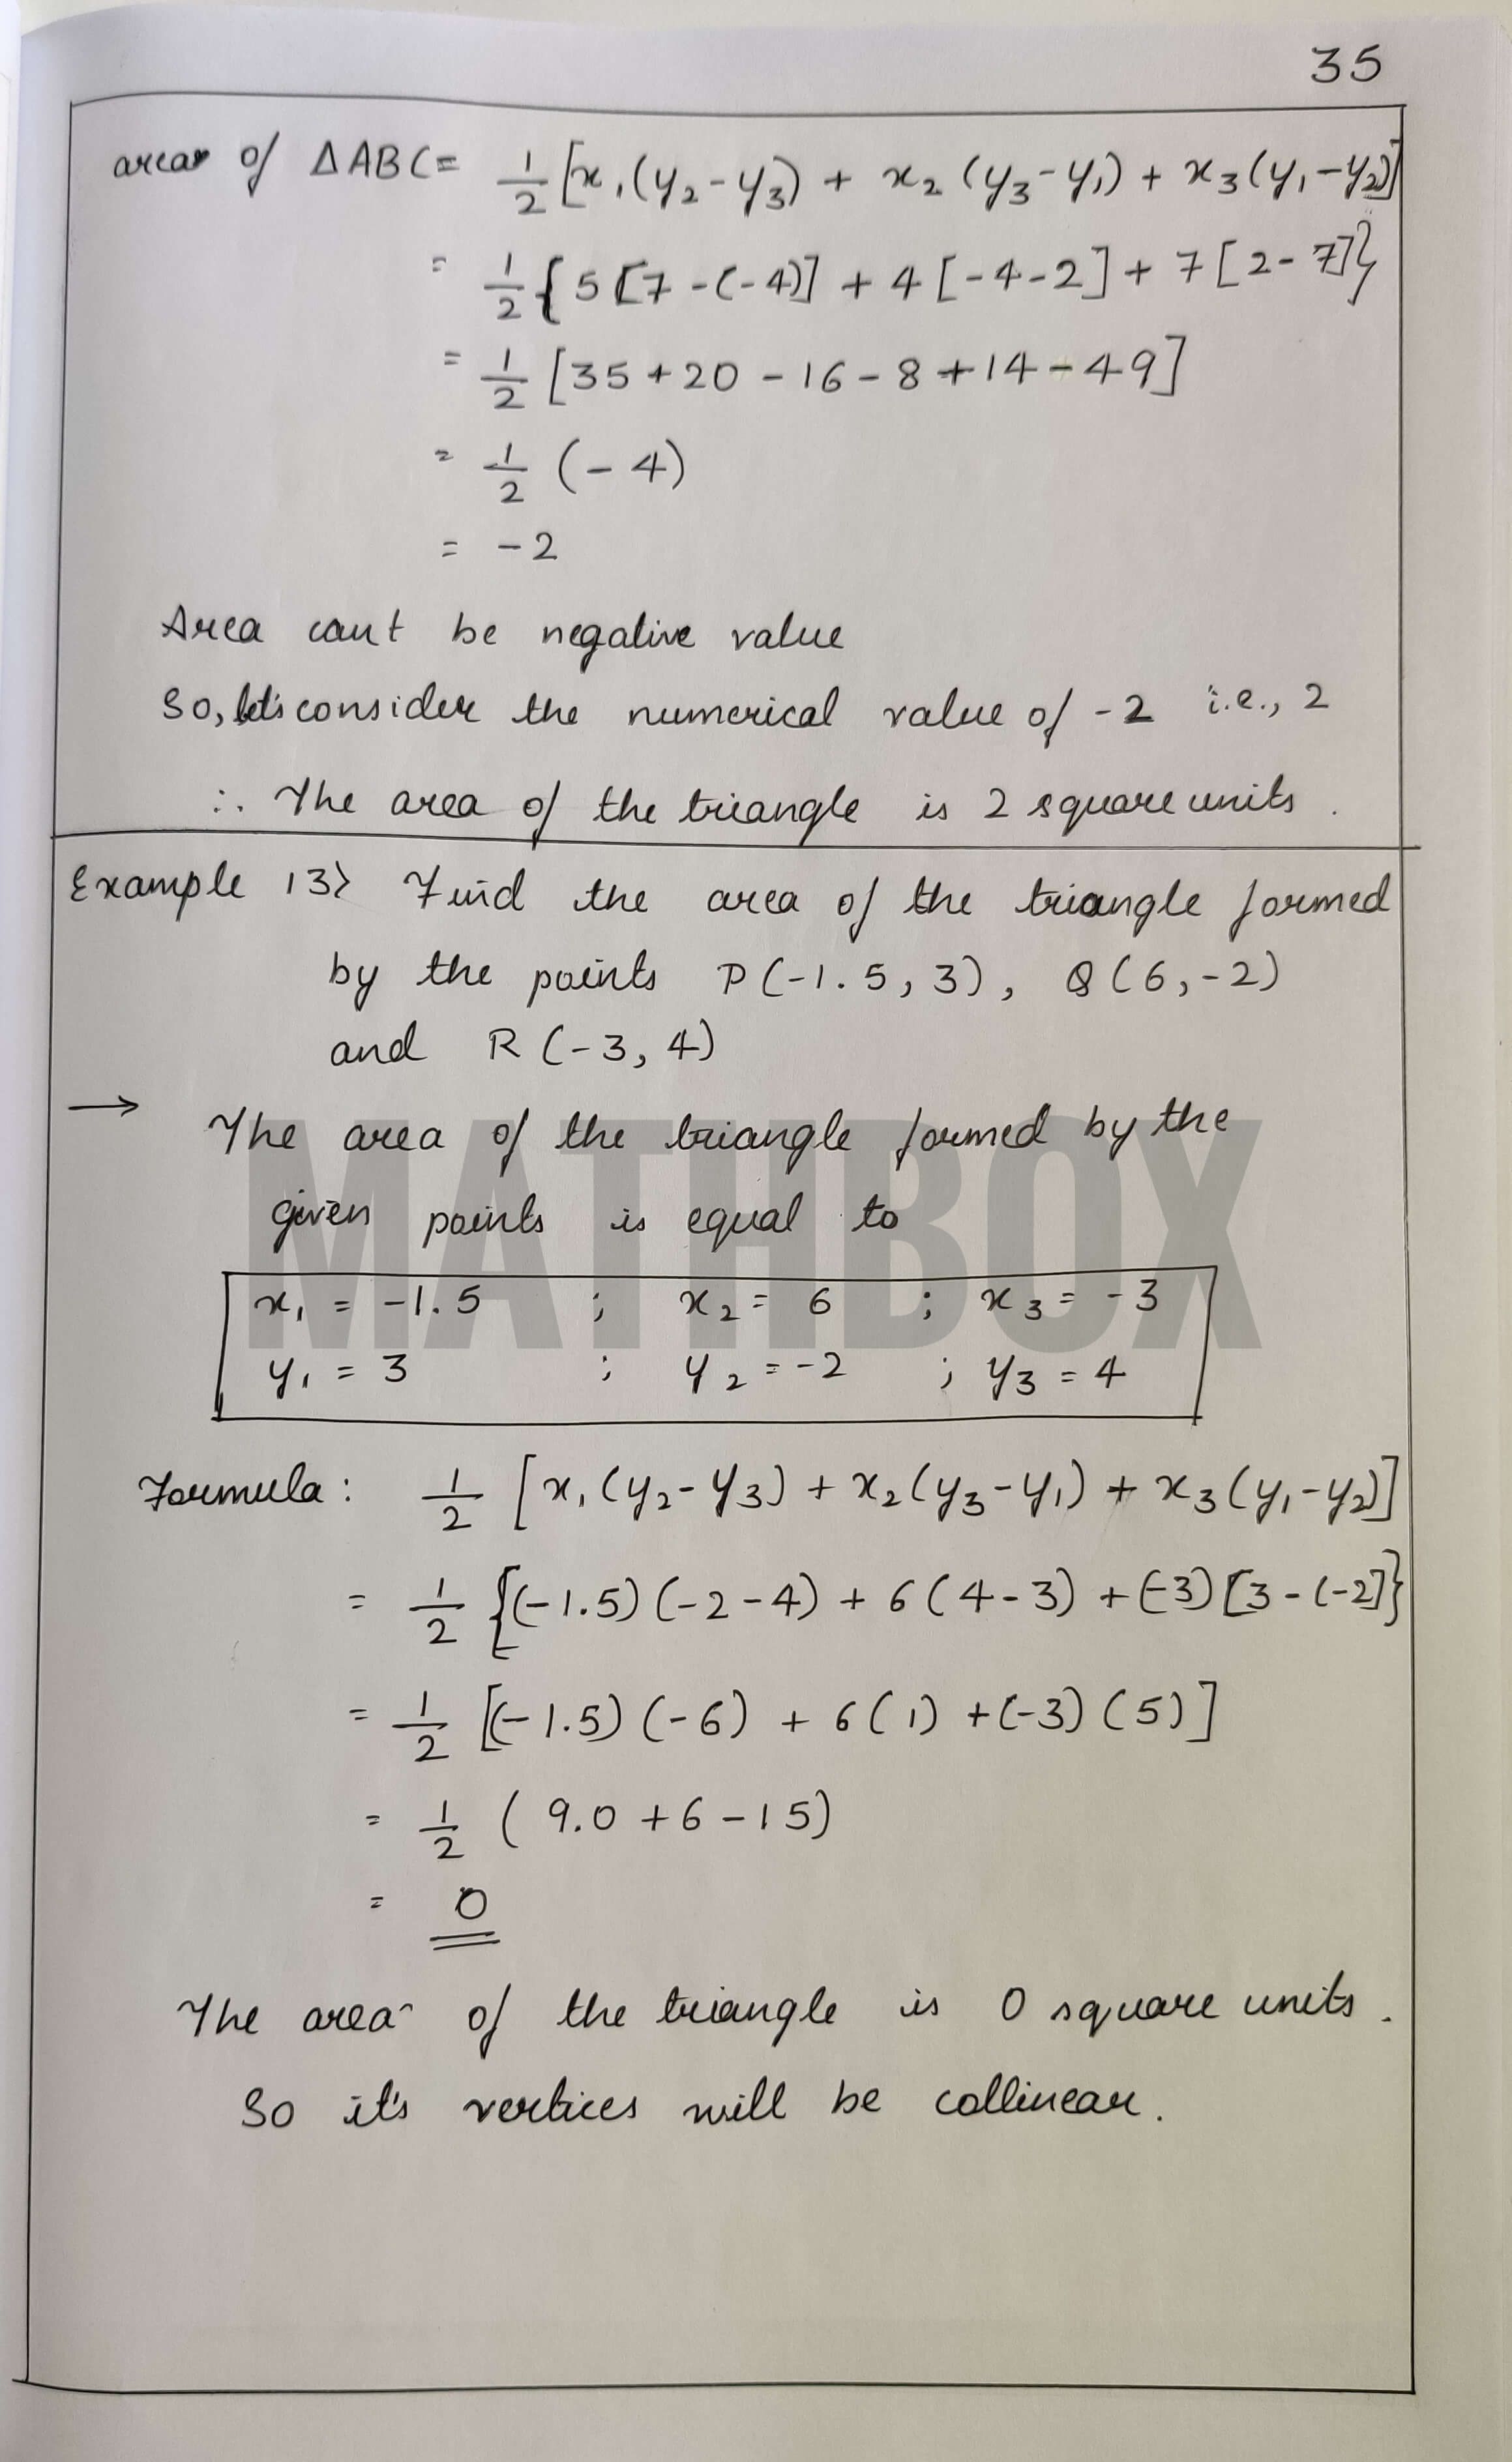 35
area of ΔABC = 1/2 [x₁(y₂-y₃) + x₂(y₃-y₁) + x₃(y₁-y₂)]
= 1/2 { 5 [7-(-4)] + 4 [-4-2] + 7 [2-7]}
= 1/2 [35+20-16-8+14-49]
= 1/2 (-4)
= -2
Area can't be negative value
So, let's consider the numerical value of -2 i.e., 2
∴ The area of the triangle is 2 square units.
Example 13> Find the area of the triangle formed
by the points P(-1.5, 3), Q(6,-2)
and R(-3, 4)
→ The area of the triangle formed by the
given points is equal to
MATHBOX
x₁ = -1.5 ; x₂ = 6 ; x₃ = -3
y₁ = 3 ; y₂ = -2 ; y₃ = 4
Formula: 1/2 [x₁(y₂-y₃) + x₂(y₃-y₁) + x₃(y₁-y₂)]
= 1/2 {(-1.5)(-2-4) + 6(4-3) + (-3)[3-(-2]}
= 1/2 [(-1.5)(-6) + 6(1) + (-3)(5)]
= 1/2 (9.0+6-15)
= 0
The area of the triangle is 0 square units.
So it's vertices will be collinear.